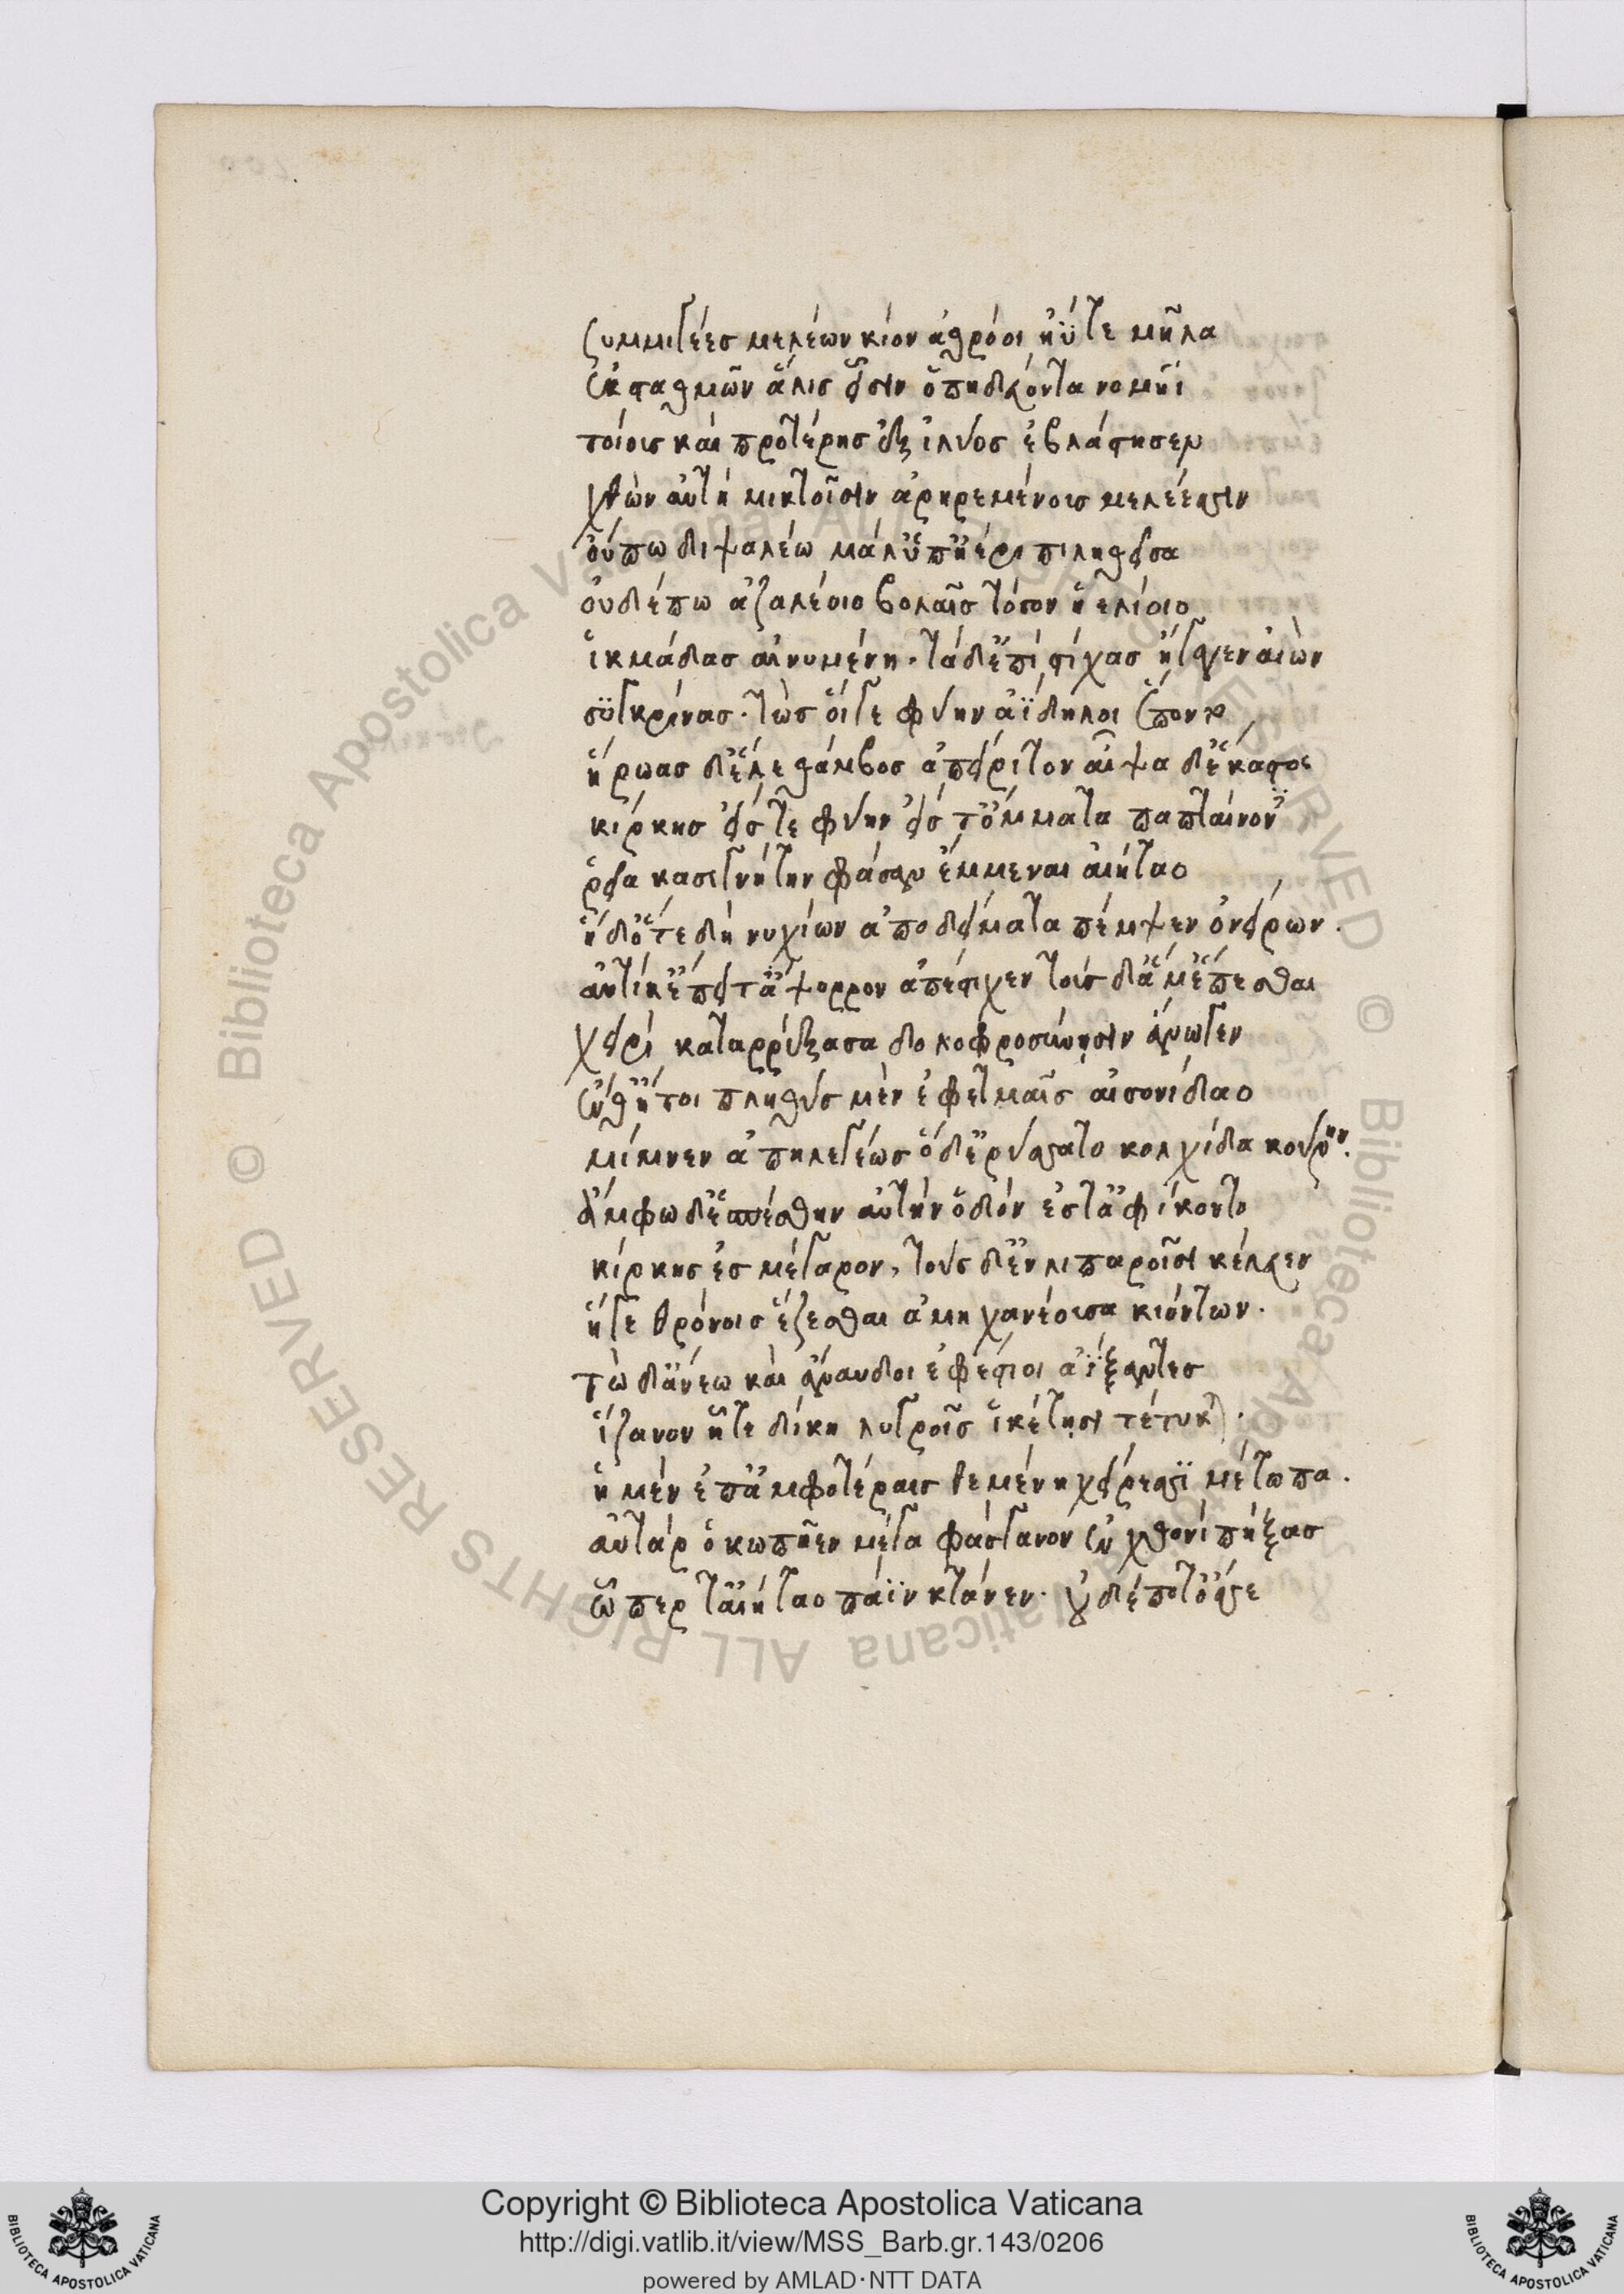 συμμιγέες μελέων κίον ἀθρόοι ἠΰτε μῆλα
ἐκ σταθμῶν ἅλις εἶσιν ὀπηδεύοντα νομῆϊ
τοίους καὶ προτέρης ἐξ ἰλύος ἐβλάστησεν
χθὼν αὐτὴ μικτοῖσιν ἀρηρεμένους μελέεσσιν
οὔπω διψαλέω μάλ' ὑπ' ἠέρι πιληθεῖσα
οὐδέπω ἀζαλέοιο βολαῖς τόσον ἠελίοιο
ἰκμάδας αἰνυμένη. τὰ δ' ἐπὶ στίχας ἤγαγεν αἰὼν
συγκρίνας. τὼς οἵγε φυὴν ἀΐδηλοι ἕποντο
ἥρωας δ' ἕλε θάμβος ἀπείριτον αἶψα δ' ἕκαστος
κίρκης εἴς τε φυὴν εἴς τ' ὄμματα παπταίνοντες
ῥεῖα κασιγνήτην φάσαν ἔμμεναι αἰήταο
ἡ δ' ὅτε δὴ νυχίων ἀπὸ δείματα πέμψεν ὀνείρων.
αὐτίκ' ἔπειτ' ἄψορρον ἀπέστιχεν τοὺς δ' ἅμ' ἕπεσθαι
χειρὶ καταρρέξασα δολοφροσύνῃσιν ἄνωγεν
ἔνθ' ἤτοι πληθὺς μὲν ἐφετμαῖς αἰσονίδαο
μίμνεν ἀπηλεγέως ὁ δ' ἐρύσσατο κολχίδα κούρην.
ἄμφω δ' ἑσπέσθην αὐτὴν ὁδὸν ἔστ' ἀφίκοντο
κίρκης ἐς μέγαρον, τοὺς δ' ἐν λιπαροῖσι κέλευεν
ἥγε θρόνοις ἕζεσθαι ἀμηχανέουσα κιόντων.
τὼ δ' ἄνεω καὶ ἄναυδοι ἐφέστιοι ἀΐξαντες
ἵζανον ἥτε δίκη λυγροῖς ἱκέτῃσι τέτυκται.
ἡ μὲν ἐπ' ἀμφοτέραις θεμένη χείρεσσι μέτωπα.
αὐτὰρ ὁ κωπῆεν μέγα φάσγανον ἐν χθονὶ πήξας
ᾧπερ τ' αἰήταο πάϊν κτάνεν. οὐδέποτ' ὄσσε
Copyright © Biblioteca Apostolica Vaticana
http://digi.vatlib.it/view/MSS_Barb.gr.143/0206
powered by AMLAD·NTT DATA